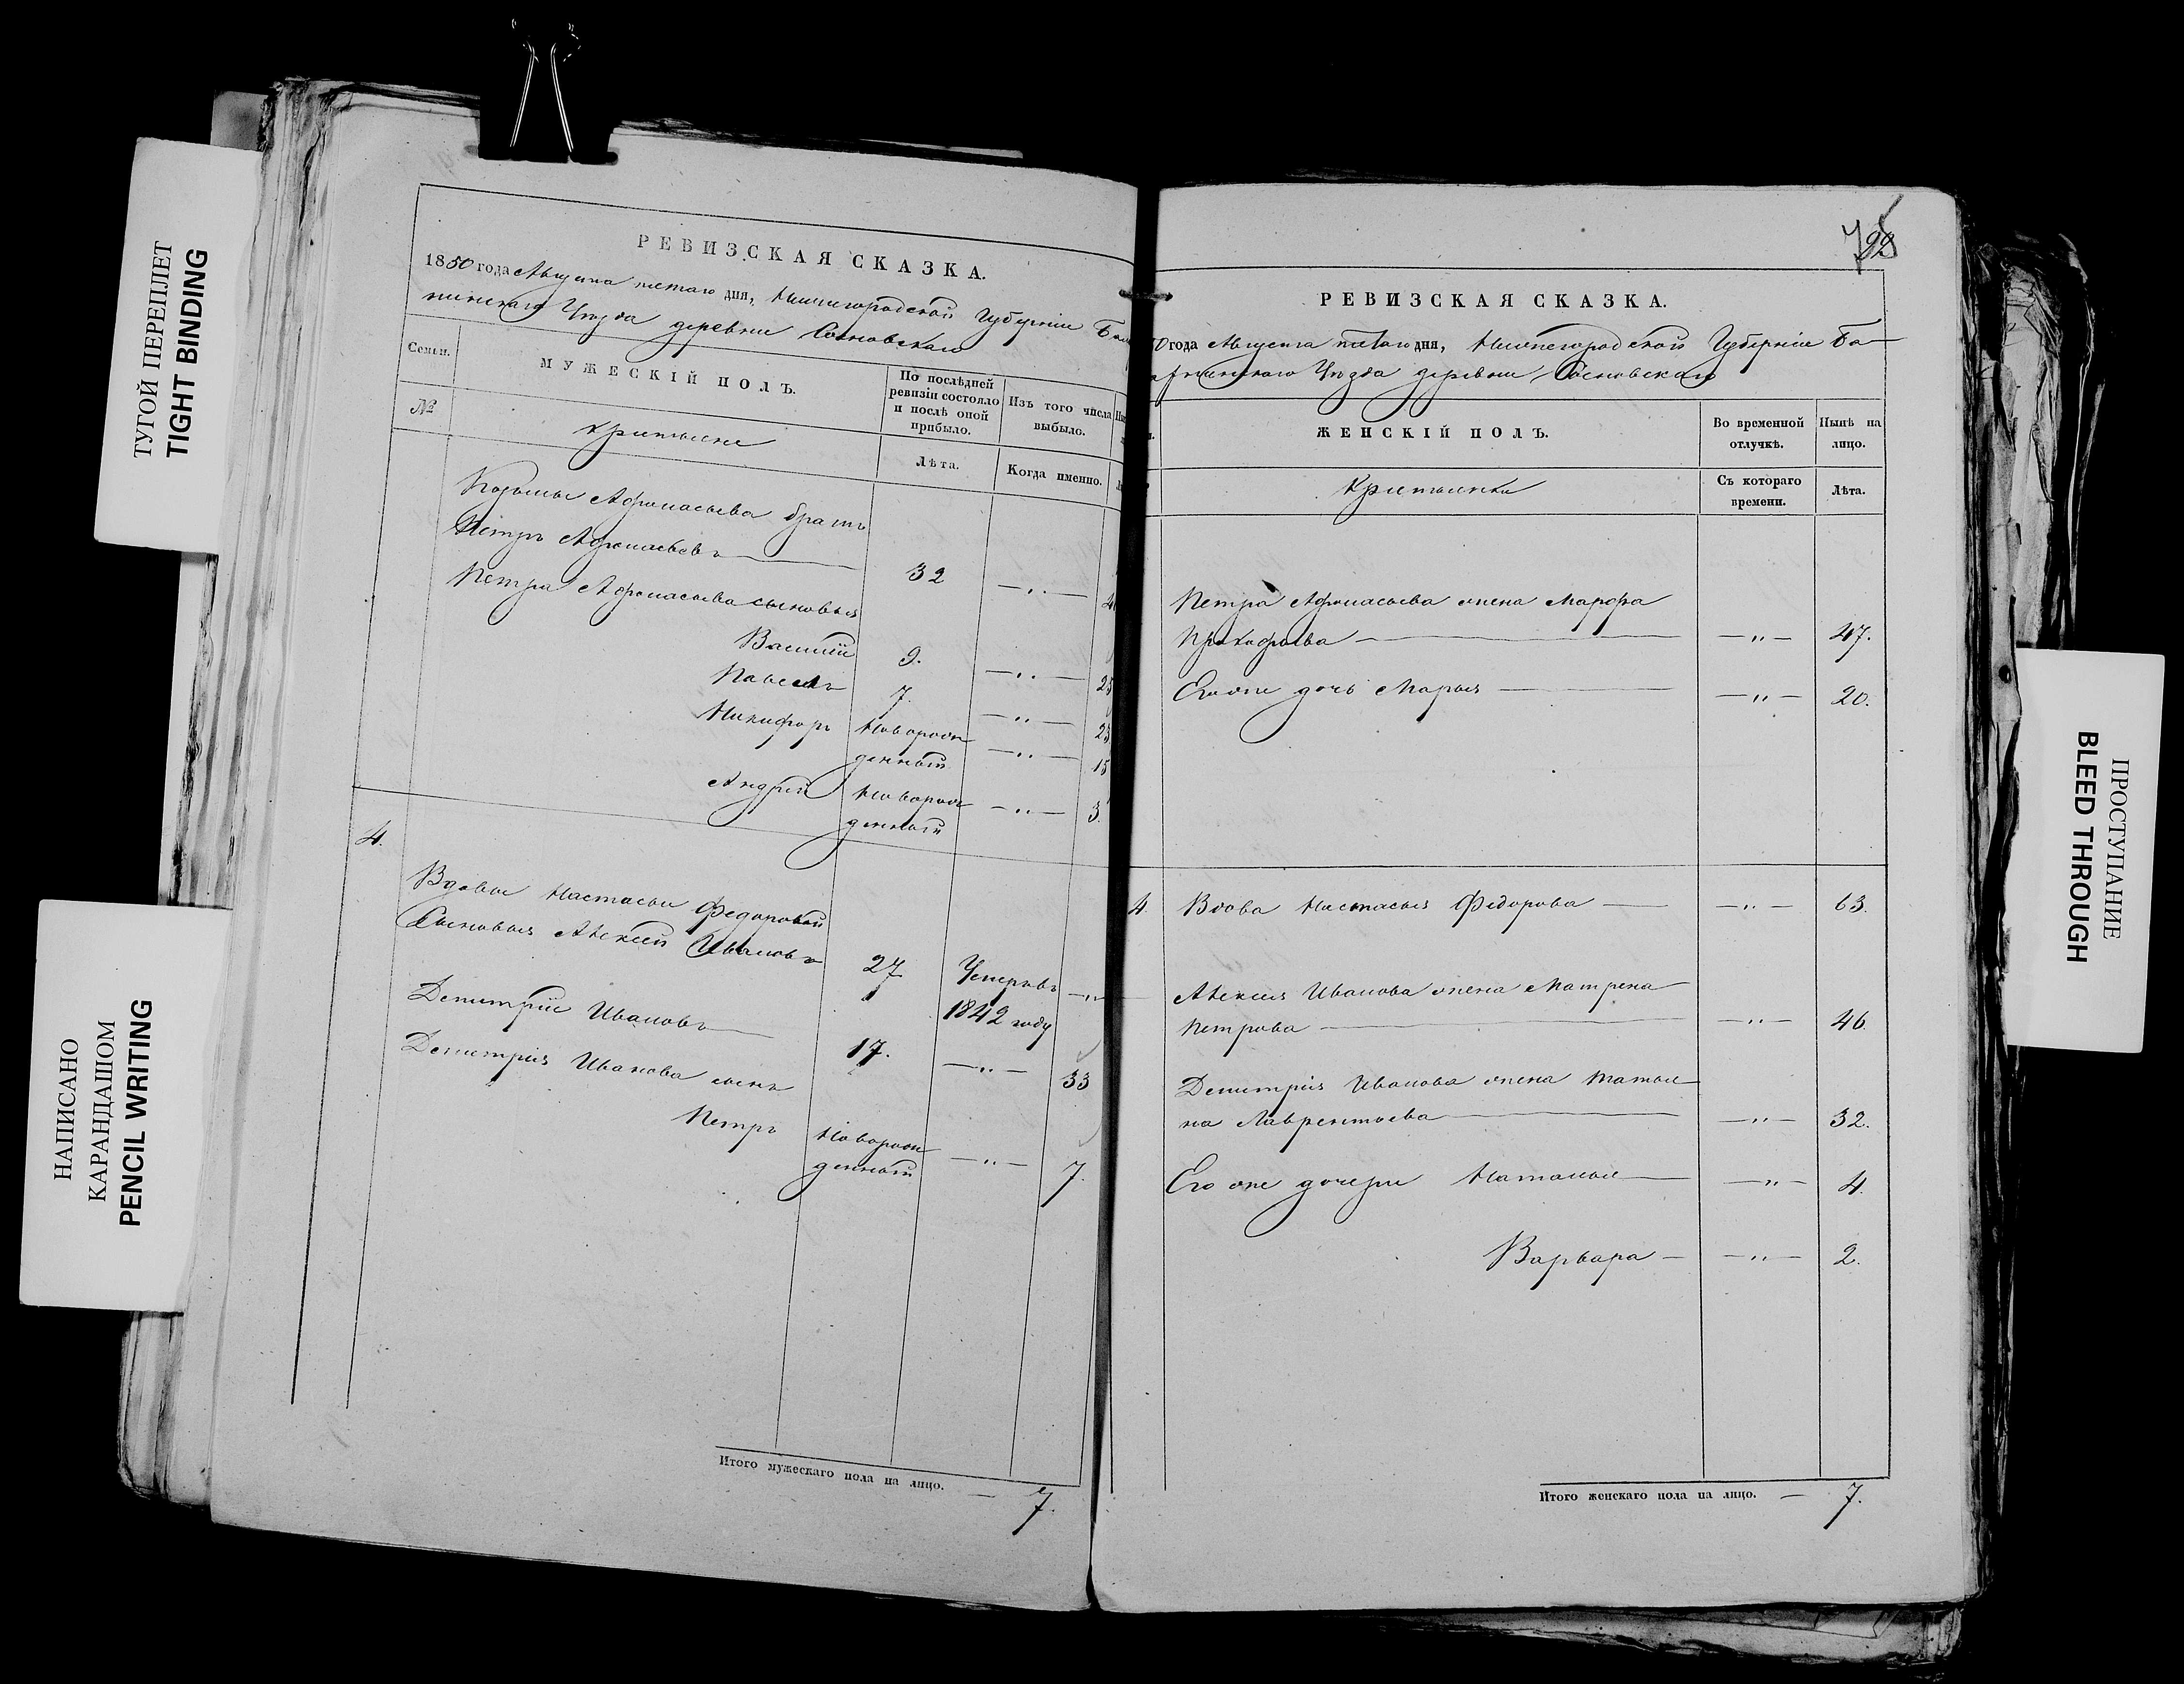 ТУГОЙ ПЕРЕПЛЕТ
TIGHT BINDING
НАПИСАНО
КАРАНДАШОМ
PENCIL WRITING
РЕВИЗСКАЯ СКАЗКА.
1850 года Августа пятаго дня, Нижегородской Губерніи Бала
хнинскаго Уѣзда деревни Сосновскаго
Семьи.
МУЖЕСКІЙ ПОЛЪ.
По послѣдней
ревизіи состояло
и послѣ оной
прибыло.
Изъ того числа
выбыло.
№
Крестьяне
Лѣта.
Когда именно.
Козьмы Афонасьева братъ
Петръ Афонасьевъ 32 —„—
Петра Афонасьева сыновья
Василій 9. —„— 25
Павелъ 7. —„— 23
Никифоръ Новорож
денный —„— 15
Андрей Новорож
денный —„— 3.
4.
Вдовы Настасьи Федоровой
Сыновья Алексей Ивановъ 27 Умерънъ
1842 году —„—
Дмитрій Ивановъ 17. —„— 33
Дмитрія Иванова сынъ
Петръ Новорож
денный —„— 7.
Итого мужескаго пола на лицо. — 7.
РЕВИЗСКАЯ СКАЗКА.
0 года Августа пятаго дня, Нижегородской Губерніи Ба
лахнинскаго Уѣзда деревни Сосновскаго
ЖЕНСКІЙ ПОЛЪ.
Во временной
отлучкѣ.
Нынѣ на
лицо.
Крестьянки
Съ котораго
времени.
Лѣта.
Петра Афонасьева жена Марфа
Прокофьева —„— 47.
Его же дочь Марья —„— 20.
4. Вдова Настасья Федорова —„— 63.
Алексея Иванова жена Матрена
Петрова —„— 46.
Дмитрія Иванова жена Татья
на Лаврентьева —„— 32.
Его же дочери Наталья —„— 4.
Варвара —„— 2.
Итого женскаго пола на лицо. — 7.
ПРОСТУПАНИЕ
BLEED THROUGH